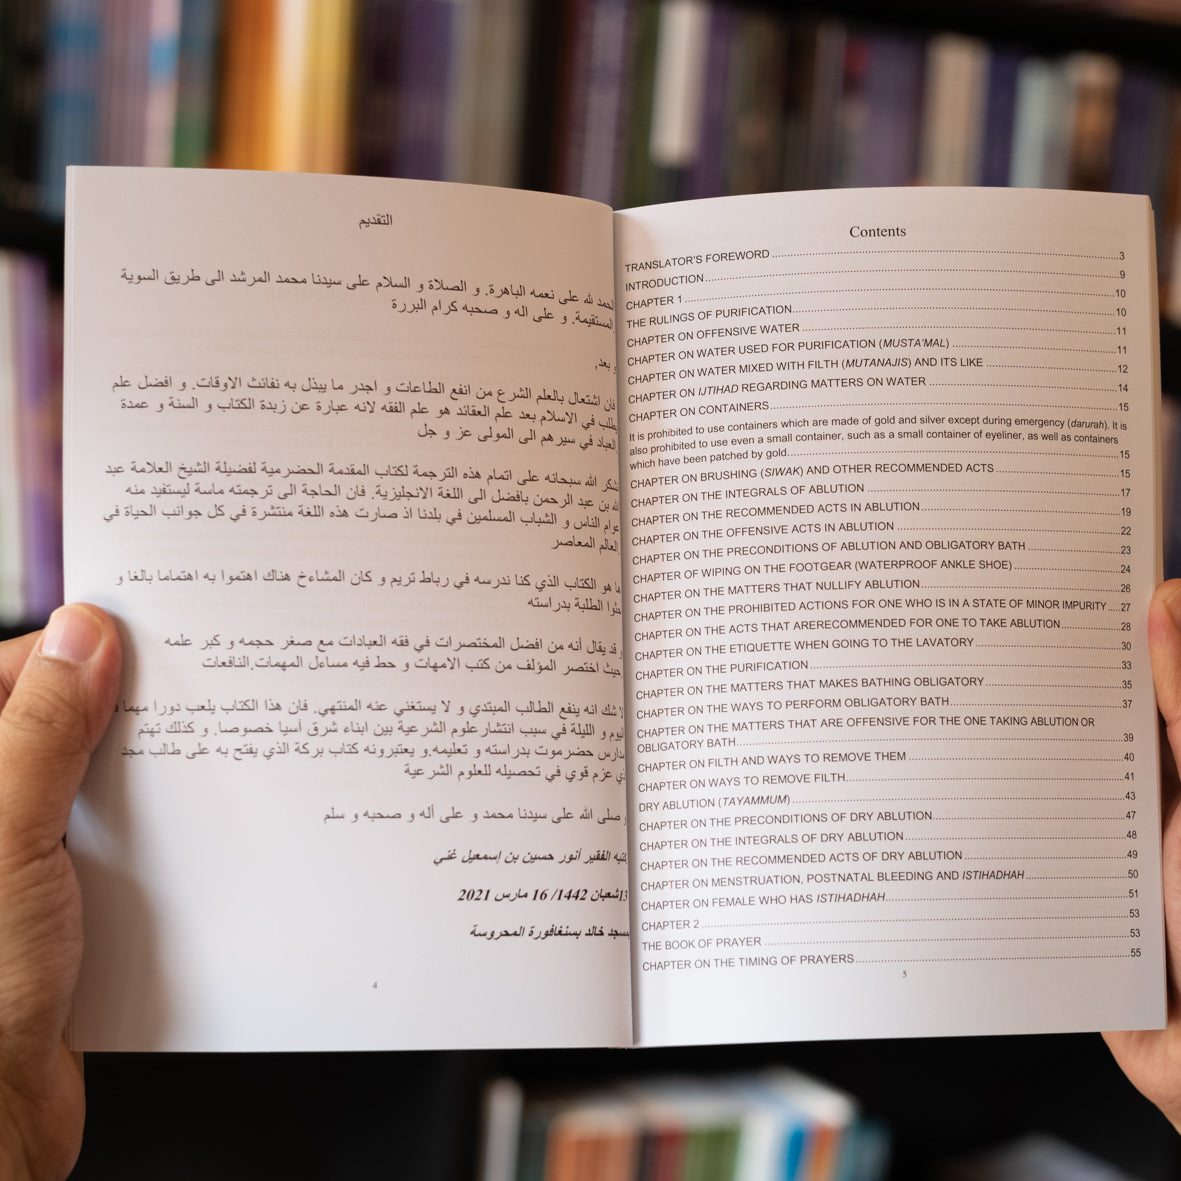 التقديم
الحمد لله على نعمه الباهرة. و الصلاة و السلام على سيدنا محمد المرشد الى طريق السوية
المستقيمة. و على اله و صحبه كرام البررة
و بعد,
فإن اشتعال بالعلم الشرع من انفع الطاعات و اجدر ما يبذل به نفائث الاوقات. و افضل علم
يطلب في الاسلام بعد علم العقائد هو علم الفقه لانه عبارة عن زبدة الكتاب و السنة و عمدة
العباد في سيرهم الى المولى عز و جل
نشكر الله سبحانه على اتمام هذه الترجمة لكتاب المقدمة الحضرمية لفضيلة الشيخ العلامة عبد
الله بن عبد الرحمن بافضل الى اللغة الانجليزية. فان الحاجة الى ترجمته ماسة ليستفيد منه
عوام الناس و الشباب المسلمين في بلدنا اذ صارت هذه اللغة منتشرة في كل جوانب الحياة في
العالم المعاصر
ها هو الكتاب الذي كنا ندرسه في رباط تريم و كان المشاءخ هناك اهتموا به اهتماما بالغا و
حثوا الطلبة بدراسته
و قد يقال أنه من افضل المختصرات في فقه العبادات مع صغر حجمه و كبر علمه
حيث اختصر المؤلف من كتب الامهات و حط فيه مساءل المهمات.النافعات
لا شك انه ينفع الطالب المبتدي و لا يستغني عنه المنتهي. فان هذا الكتاب يلعب دورا مهما
اليوم و الليلة في سبب انتشارعلوم الشرعية بين ابناء شرق آسيا خصوصا. و كذلك تهتم
مدارس حضرموت بدراسته و تعليمه.و يعتبرونه كتاب بركة الذي يفتح به على طالب مجد
ذي عزم قوي في تحصيله للعلوم الشرعية
و صلى الله على سيدنا محمد و على أله و صحبه و سلم
كتبه الفقير أنور حسين بن إسمعيل غني
13شعبان 1442/ 16 مارس 2021
مسجد خالد بسنغافورة المحروسة
4
Contents
TRANSLATOR'S FOREWORD ........ 3
INTRODUCTION ........ 9
CHAPTER 1 ........ 10
THE RULINGS OF PURIFICATION ........ 10
CHAPTER ON OFFENSIVE WATER ........ 11
CHAPTER ON WATER USED FOR PURIFICATION (MUSTA'MAL) ........ 11
CHAPTER ON WATER MIXED WITH FILTH (MUTANAJIS) AND ITS LIKE ........ 12
CHAPTER ON IJTIHAD REGARDING MATTERS ON WATER ........ 14
CHAPTER ON CONTAINERS ........ 15
It is prohibited to use containers which are made of gold and silver except during emergency (darurah). It is
also prohibited to use even a small container, such as a small container of eyeliner, as well as containers
which have been patched by gold ........ 15
CHAPTER ON BRUSHING (SIWAK) AND OTHER RECOMMENDED ACTS ........ 15
CHAPTER ON THE INTEGRALS OF ABLUTION ........ 17
CHAPTER ON THE RECOMMENDED ACTS IN ABLUTION ........ 19
CHAPTER ON THE OFFENSIVE ACTS IN ABLUTION ........ 22
CHAPTER ON THE PRECONDITIONS OF ABLUTION AND OBLIGATORY BATH ........ 23
CHAPTER OF WIPING ON THE FOOTGEAR (WATERPROOF ANKLE SHOE) ........ 24
CHAPTER ON THE MATTERS THAT NULLIFY ABLUTION ........ 26
CHAPTER ON THE PROHIBITED ACTIONS FOR ONE WHO IS IN A STATE OF MINOR IMPURITY .... 27
CHAPTER ON THE ACTS THAT ARERECOMMENDED FOR ONE TO TAKE ABLUTION ........ 28
CHAPTER ON THE ETIQUETTE WHEN GOING TO THE LAVATORY ........ 30
CHAPTER ON THE PURIFICATION ........ 33
CHAPTER ON THE MATTERS THAT MAKES BATHING OBLIGATORY ........ 35
CHAPTER ON THE WAYS TO PERFORM OBLIGATORY BATH ........ 37
CHAPTER ON THE MATTERS THAT ARE OFFENSIVE FOR THE ONE TAKING ABLUTION OR
OBLIGATORY BATH ........ 39
CHAPTER ON FILTH AND WAYS TO REMOVE THEM ........ 40
CHAPTER ON WAYS TO REMOVE FILTH ........ 41
DRY ABLUTION (TAYAMMUM) ........ 43
CHAPTER ON THE PRECONDITIONS OF DRY ABLUTION ........ 47
CHAPTER ON THE INTEGRALS OF DRY ABLUTION ........ 48
CHAPTER ON THE RECOMMENDED ACTS OF DRY ABLUTION ........ 49
CHAPTER ON MENSTRUATION, POSTNATAL BLEEDING AND ISTIHADHAH ........ 50
CHAPTER ON FEMALE WHO HAS ISTIHADHAH ........ 51
CHAPTER 2 ........ 53
THE BOOK OF PRAYER ........ 53
CHAPTER ON THE TIMING OF PRAYERS ........ 55
5